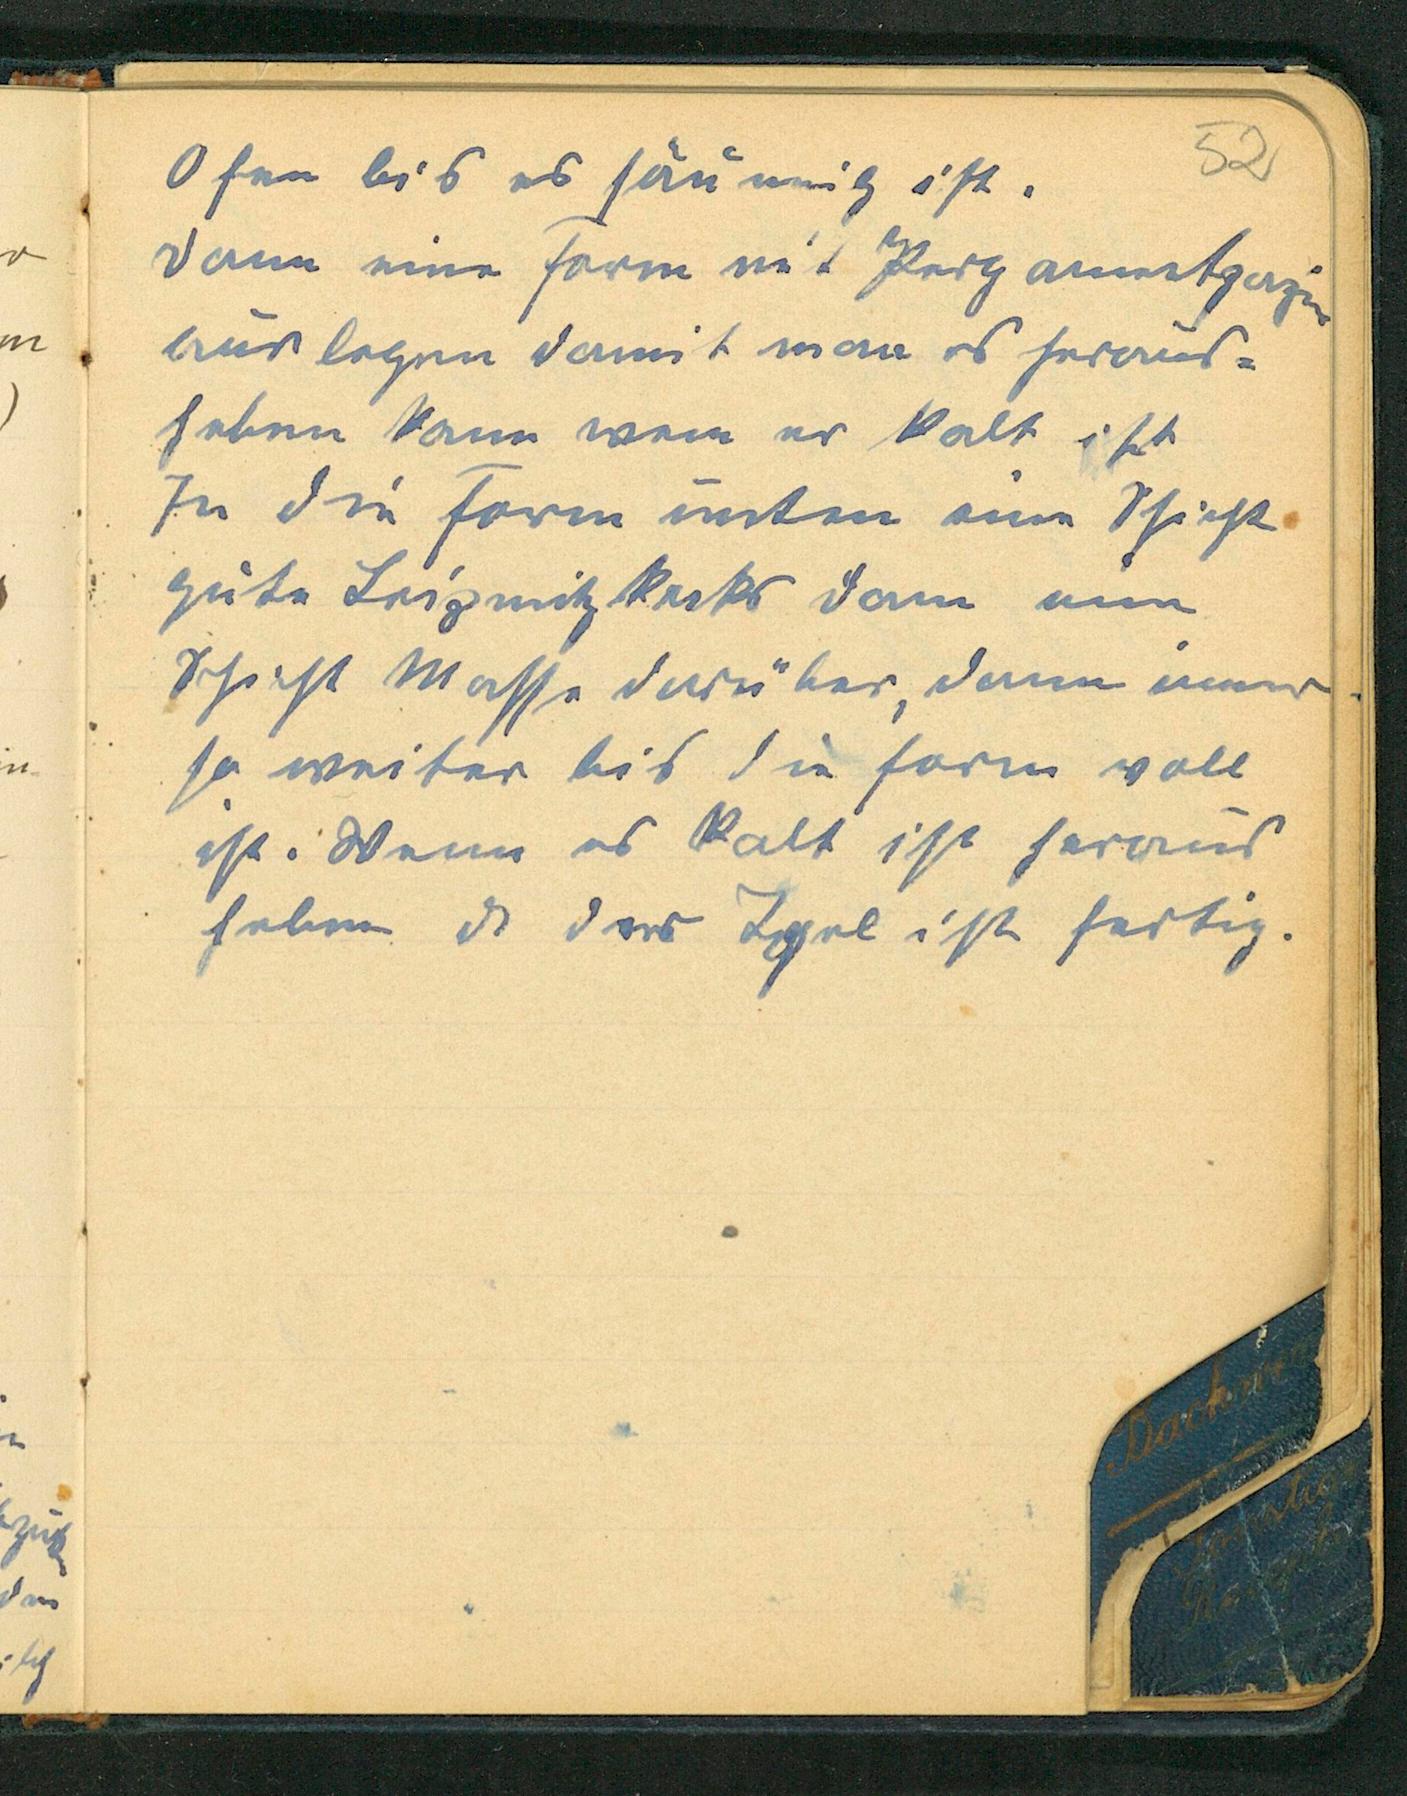 52
Ofen bis es säumig ist.
dann eine Form mit Pergamentpapier
aus legen damit man es heraus=
heben kann wenn er kalt ist
In die Form unten eine Schicht
gute Leipnitzkeks dann eine
Schicht Masse darüber, dann immer
so weiter bis die Form voll
ist. Wenn es kalt ist heraus
heben & der Igel ist fertig.
Backw